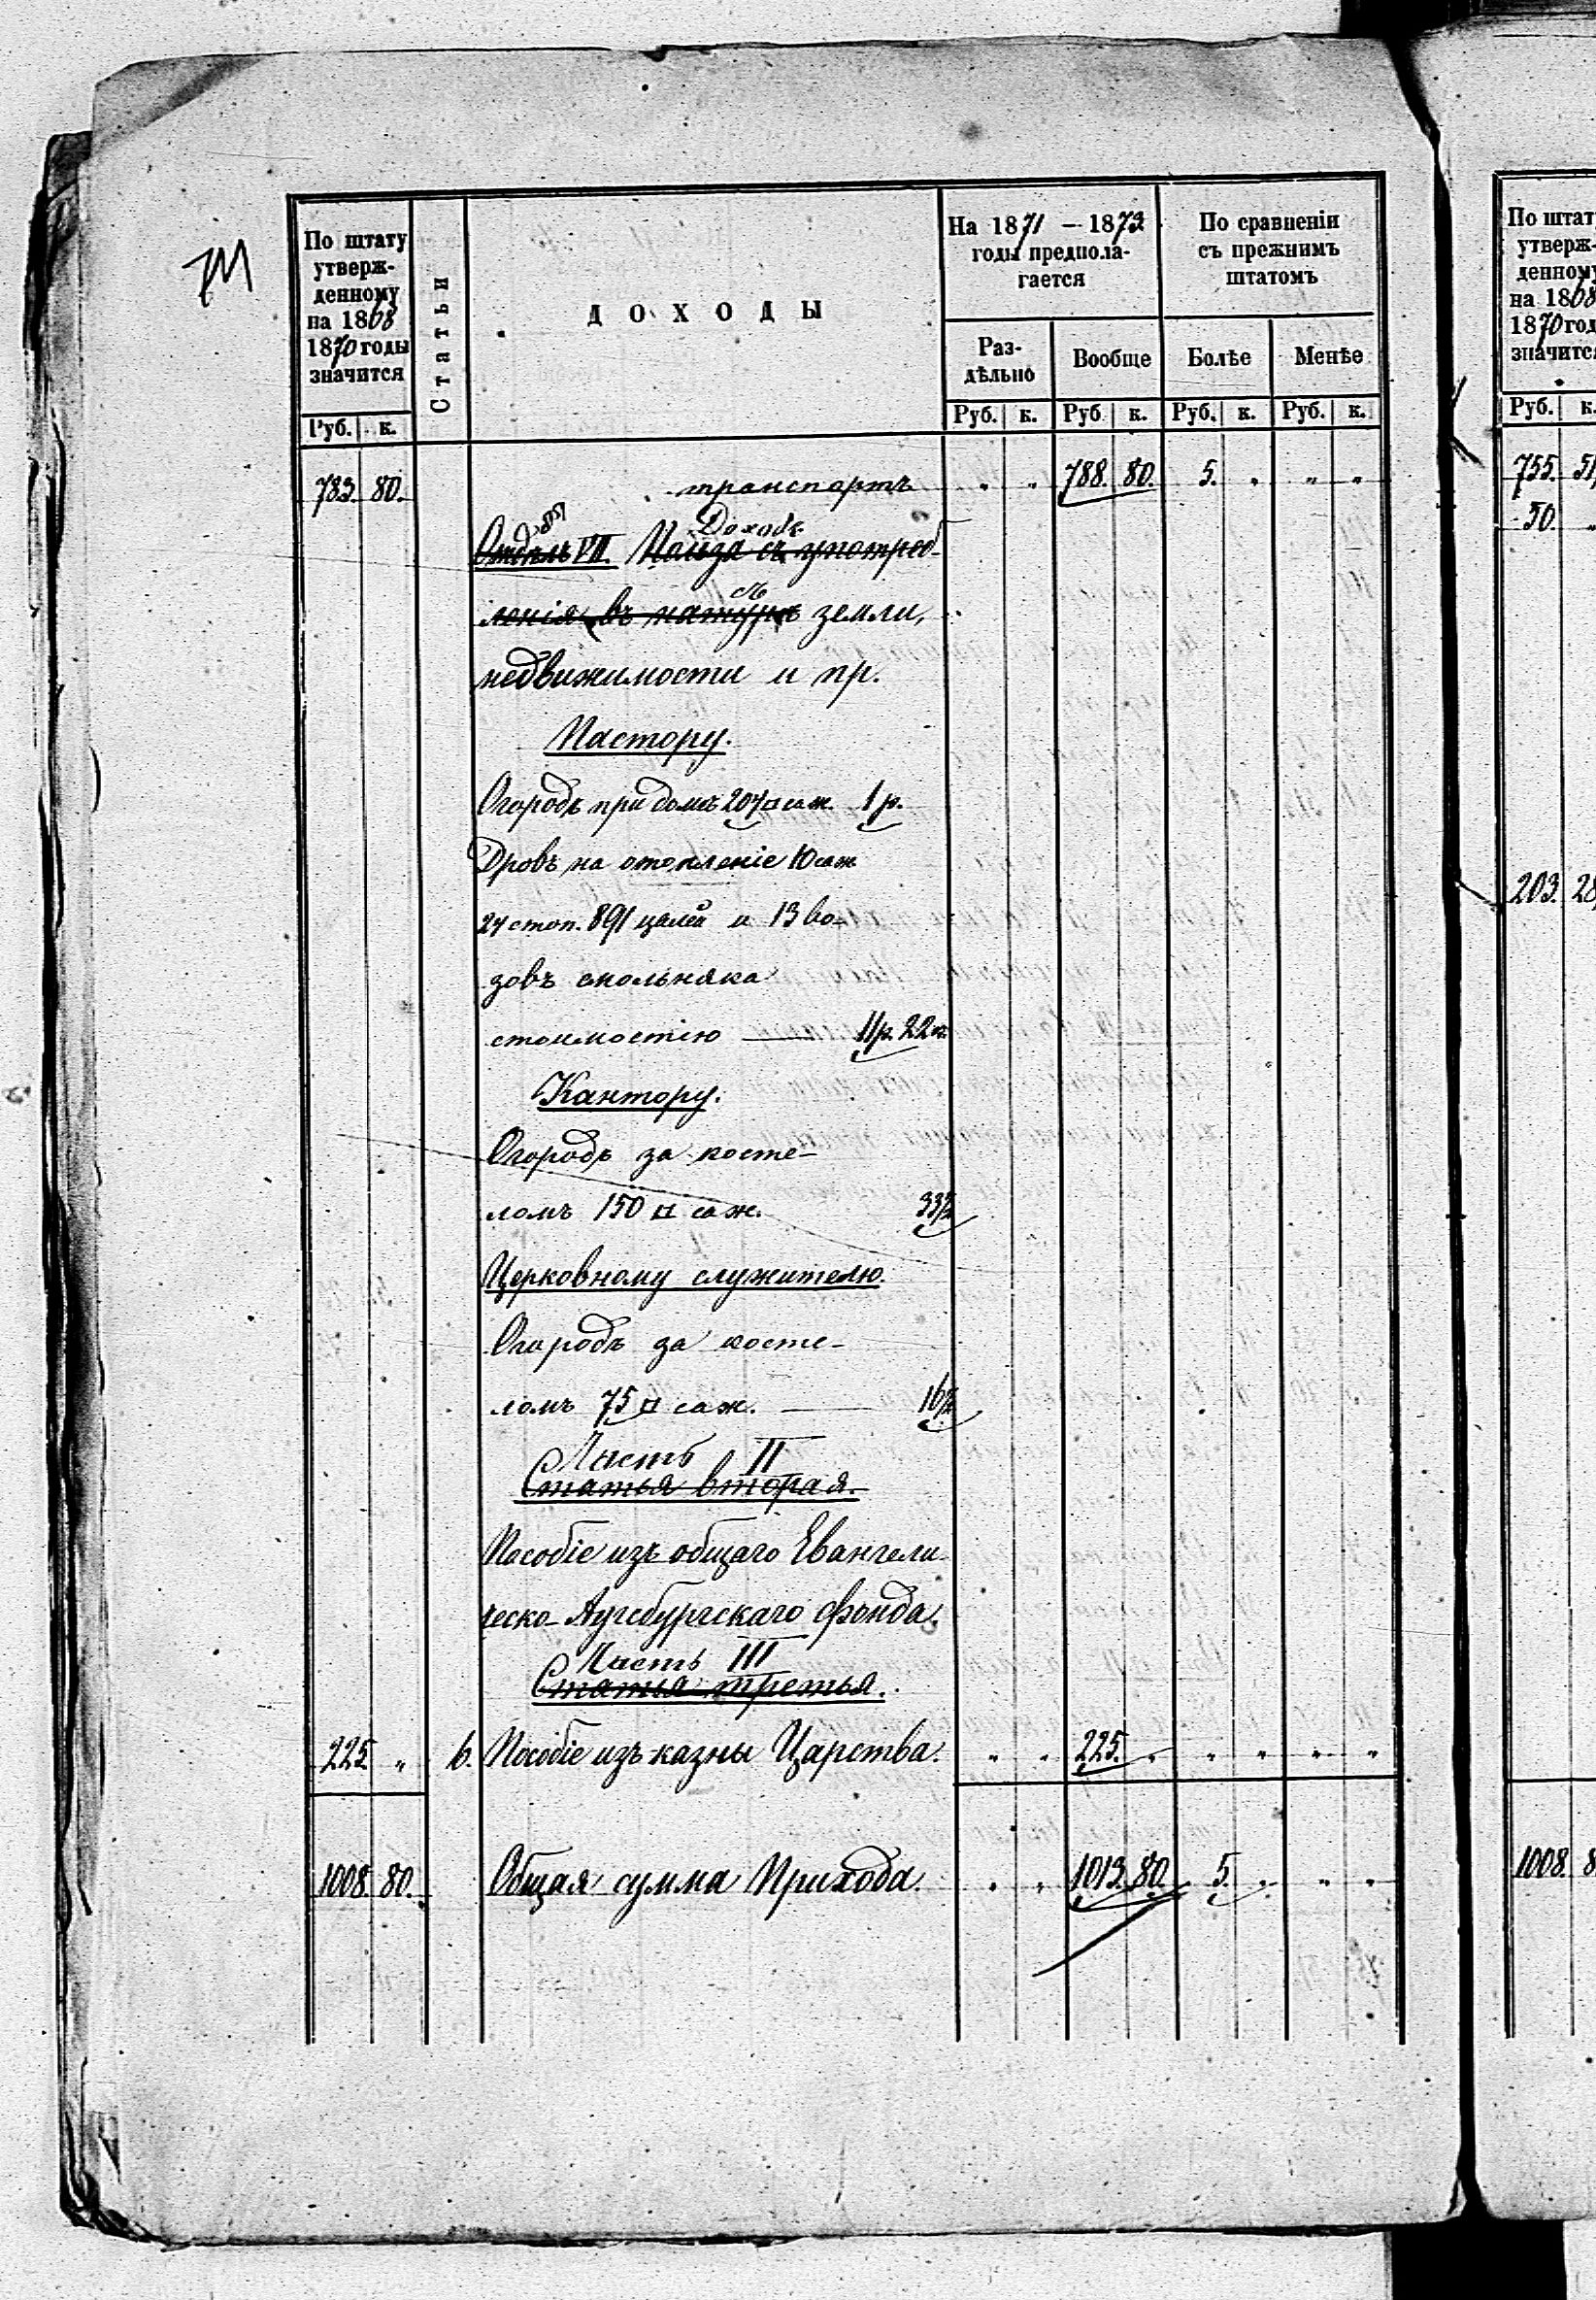 По штату
утверж-
денному
на 1868
1870 годы
значится
Статьи
ДОХОДЫ
На 1871 – 1873
годы предпола-
гается
По сравненіи
съ прежнимъ
штатомъ
Раз-
дѣльно
Вообще
Болѣе
Менѣе
Руб. к.
Руб. к. Руб. к. Руб. к. Руб. к.
783. 80. транспортъ „ „ 788. 80. 5. „ „ „
Доходъ
Отдѣлъ VIII. Польза съ употреб-
съ
ленія въ натурѣ земли,
недвижимости и пр.
Пастору.
Огородъ при домѣ 207 □ саж. 1 р.
Дровъ на отопленіе 10 саж
24 стоп. 891 цалей и 13 во-
зовъ смольняка
стоимостію — 11 р. 22 к.
Кантору.
Огородъ за косте-
ломъ 150 □ саж.
Церковному служителю.
Огородъ за косте-
ломъ 75 □ саж. —
Часть II
Статья вторая.
Пособіе изъ общаго Евангели-
ческо-Аугсбургскаго Фонда.
Часть III
Статья третья.
225. „ 6. Пособіе изъ казны Царства. „ „ 225. „ „ „ „ „
1008. 80. Общая сумма Прихода. „ „ 1013. 80. 5. „ „ „
По штат
утверж-
денному
на 1868
1870 год
значитс
Руб. к.
755. 51
50. „
203. 28
1008. 8